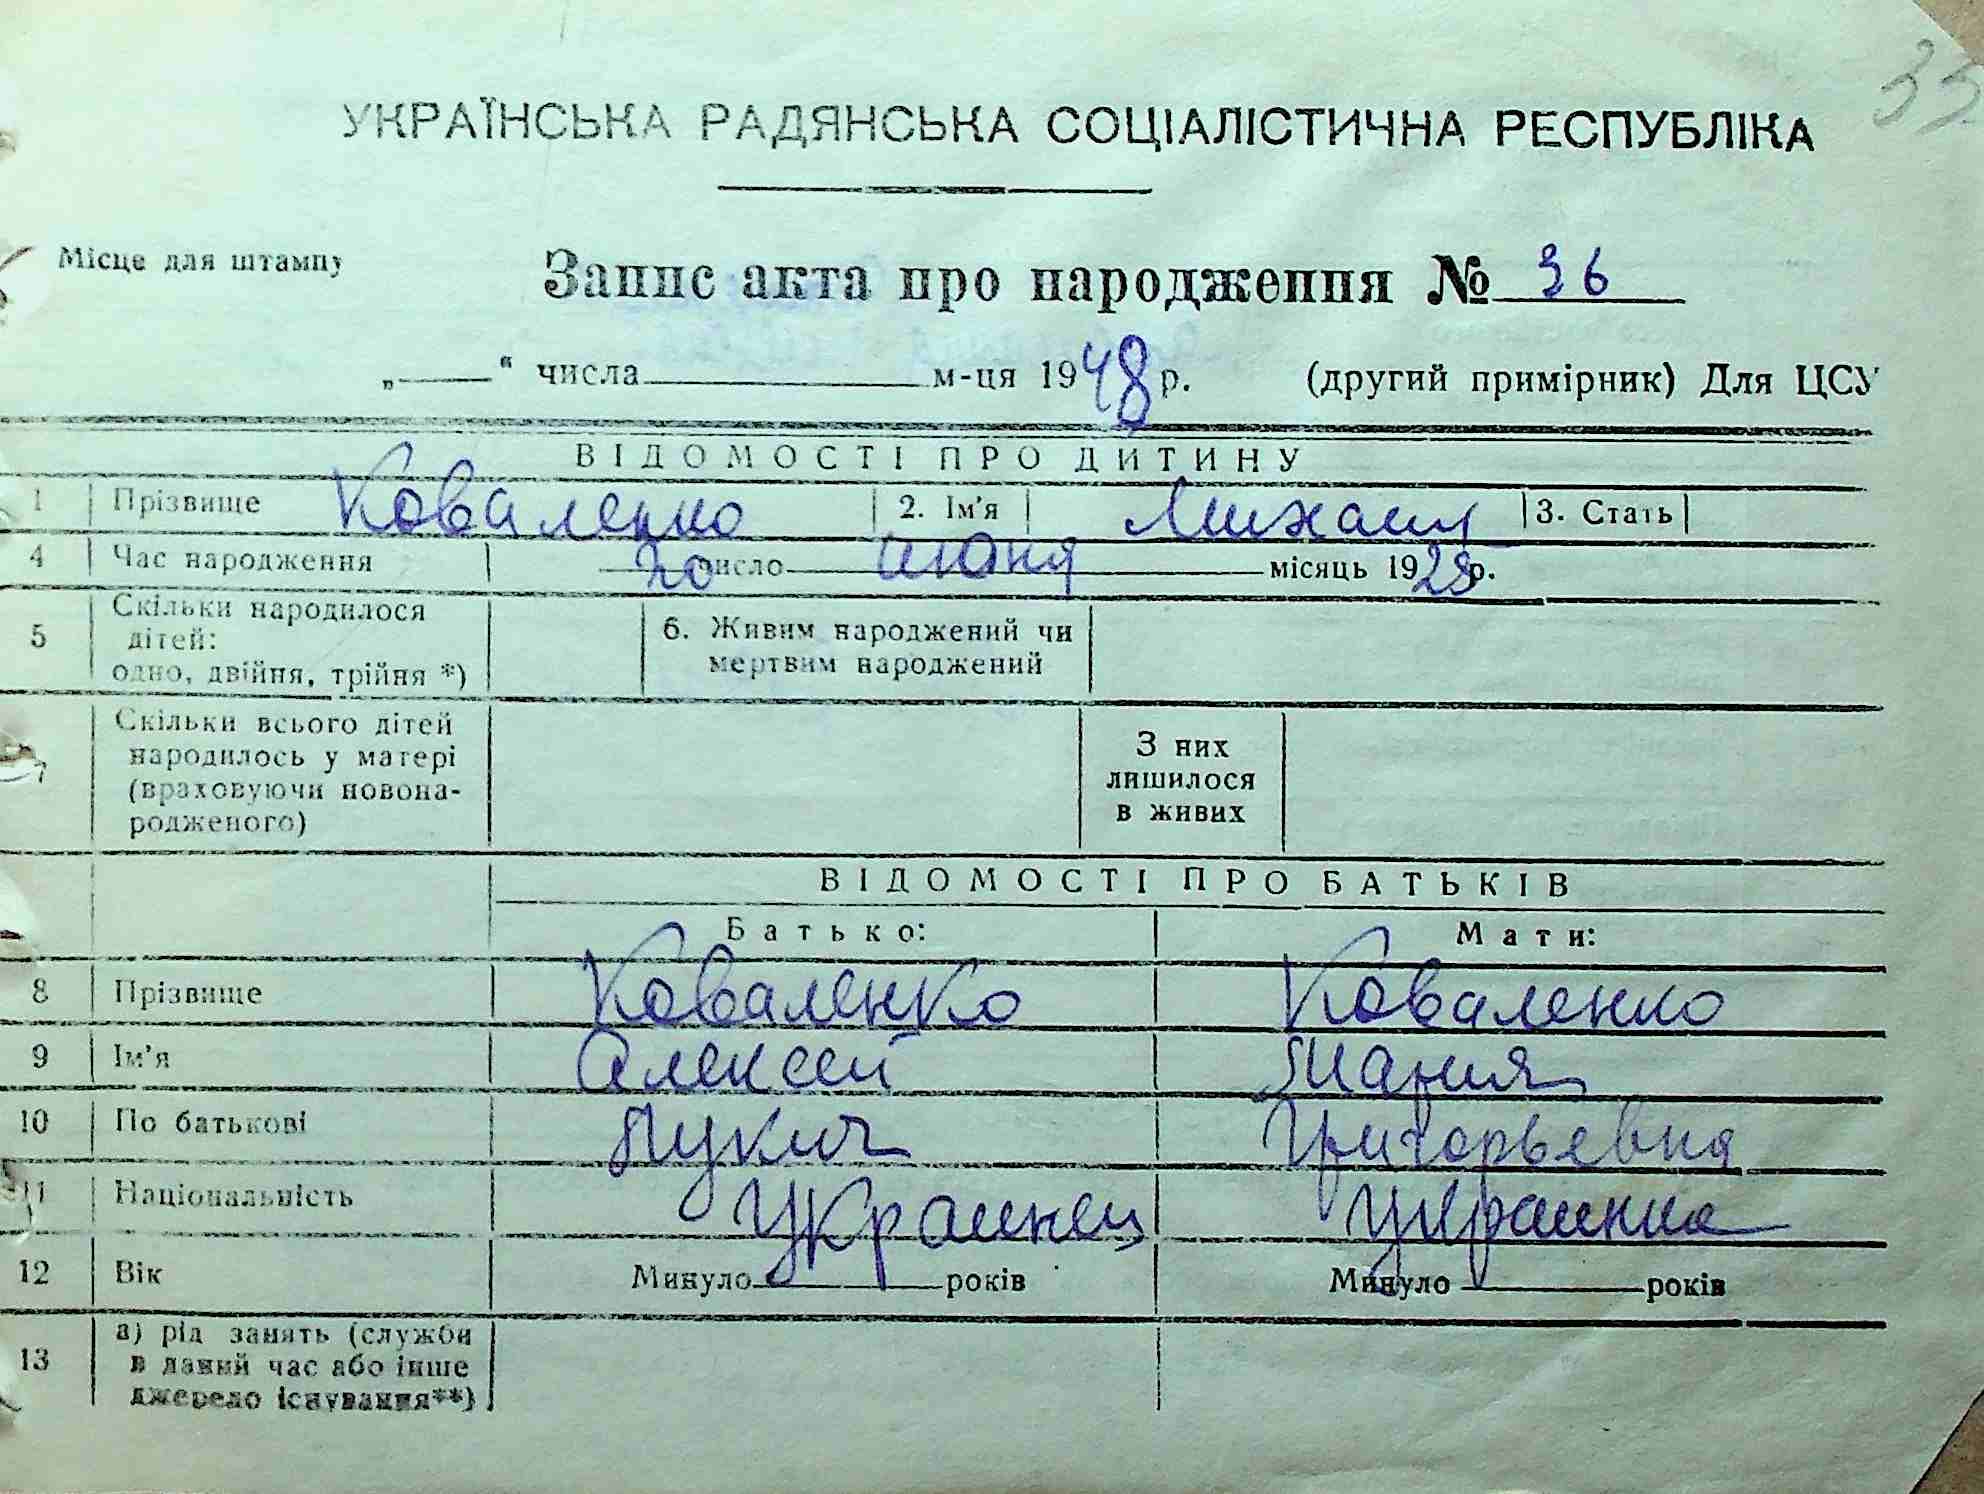 35
УКРАЇНСЬКА РАДЯНСЬКА СОЦІАЛІСТИЧНА РЕСПУБЛІКА
Місце для штампу
Запис акта про народження № 36
„——“ числа м-ця 1948 р. (другий примірник) Для ЦСУ
ВІДОМОСТІ ПРО ДИТИНУ
1 Прізвище Коваленко 2. Ім'я Михаил 3. Стать
4 Час народження 20 число июня місяць 1928 р.
5 Скільки народилося дітей: одно, двійня, трійня *) 6. Живим народжений чи мертвим народжений
7 Скільки всього дітей народилось у матері (враховуючи новона-родженого) З них лишилося в живих
ВІДОМОСТІ ПРО БАТЬКІВ
Батько: Мати:
8 Прізвище Коваленко Коваленко
9 Ім'я Алексей Мария
10 По батькові Лукич Григорьевна
11 Національність Украинец Украинка
12 Вік Минуло років Минуло років
13 а) рід занять (служби в даний час або інше джерело існування**)